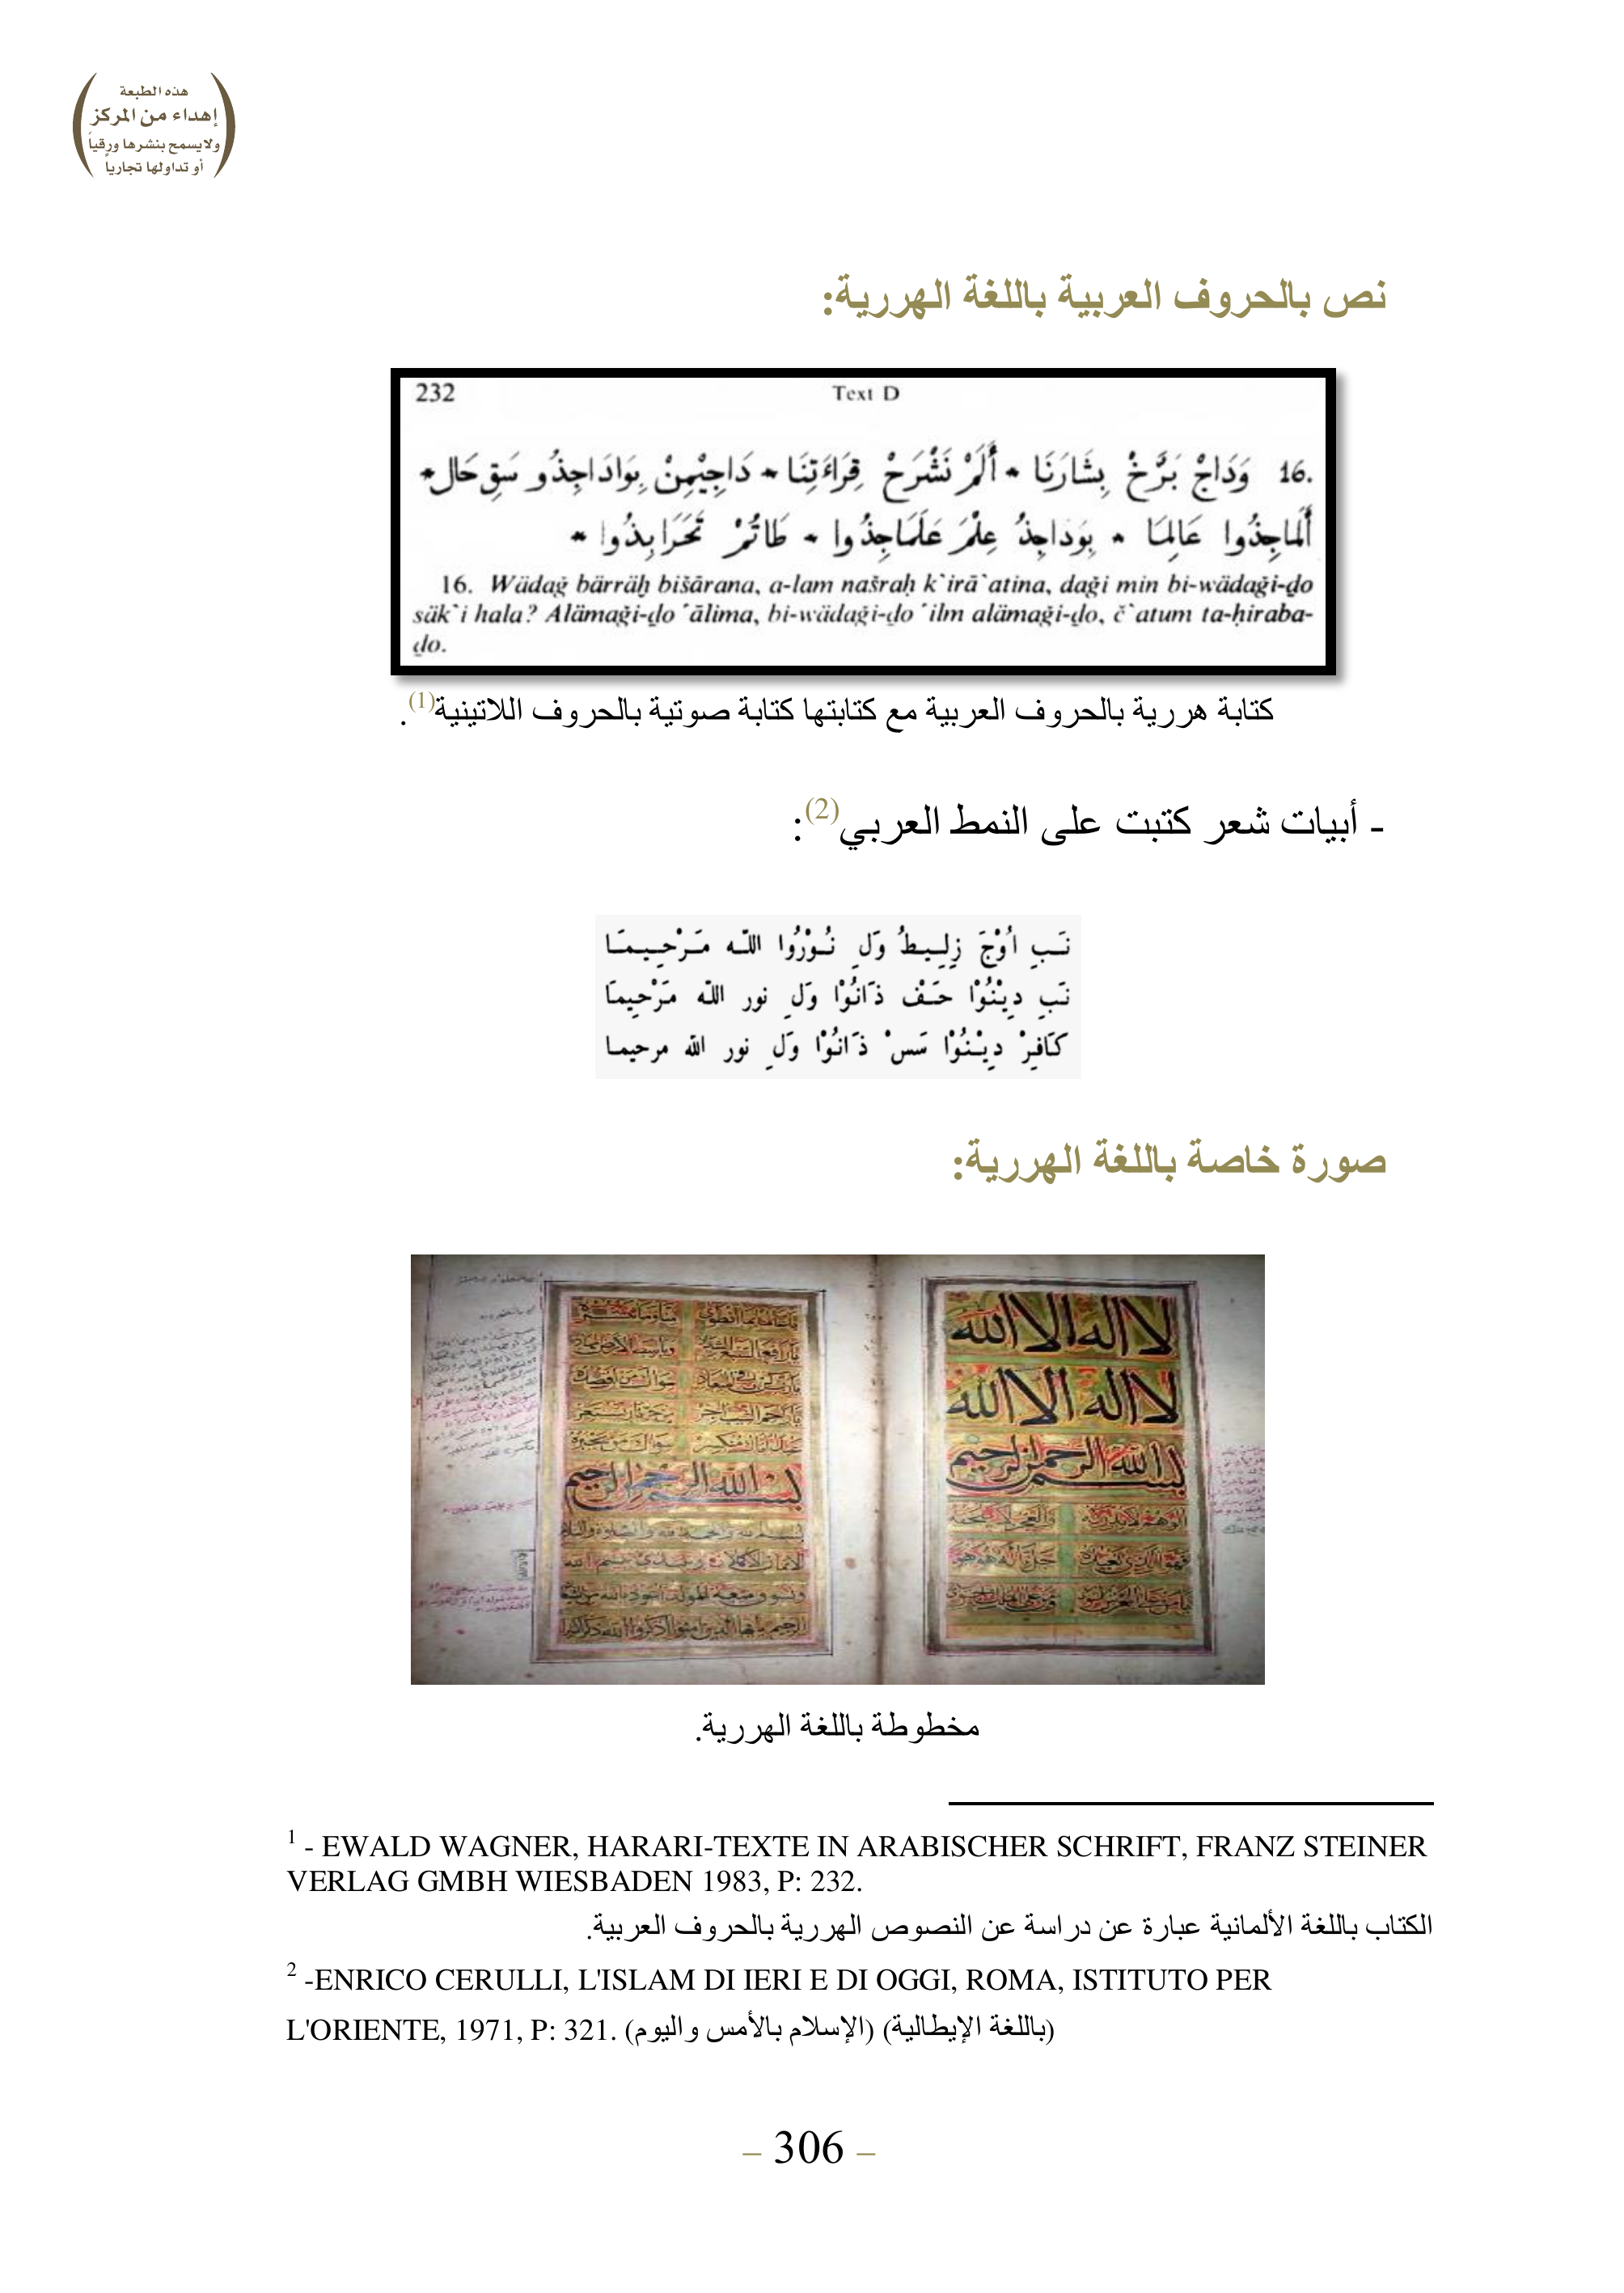 هذه الطبعة
إهداء من المركز
ولا يسمح بنشرها ورقياً
أو تداولها تجارياً
نص بالحروف العربية باللغة الهررية:
232 Text D
16. وَدَاجْ بَرَّخْ بِشَارَنَا * أَلَمْ نَشْرَحْ قِرَاءَتِنَا * دَاجِيْمِنْ بِوَادَاجِذُو سَقِ حَال *
أَلَماجِذُوا عَالِمَا * بِوَداجِذُ عِلْمَ عَلَمَاجِذُوا * طَاتُمْ تَحَرَابِذُوا *
16. Wädaǧ bärräḫ bišārana, a-lam našraḥ k`irā`atina, daǧi min bi-wädaǧi-ḏo
säk`i hala? Alämaǧi-ḏo ʿālima, bi-wädaǧi-ḏo ʿilm alämaǧi-ḏo, č`atum ta-ḥiraba-
ḏo.
كتابة هررية بالحروف العربية مع كتابتها كتابة صوتية بالحروف اللاتينية(1).
- أبيات شعر كتبت على النمط العربي(2):
نَبِ اُوْجَ زِلِيطُ وَلِ نُوْرُوا اللّه مَرْحِيمَا
نَبِ دِيْنُوْا حَفْ ذَانُوْا وَلِ نور اللّه مَرْحِيمَا
كَافِرْ دِيْنُوْا سَسْ ذَانُوْا وَلِ نور اللّه مرحيما
صورة خاصة باللغة الهررية:
لا اله الا الله
لا اله الا الله
بسم الله الرحمن الرحيم
بسم الله الرحمن الرحيم
مخطوطة باللغة الهررية.
1 - EWALD WAGNER, HARARI-TEXTE IN ARABISCHER SCHRIFT, FRANZ STEINER
VERLAG GMBH WIESBADEN 1983, P: 232.
الكتاب باللغة الألمانية عبارة عن دراسة عن النصوص الهررية بالحروف العربية.
2 -ENRICO CERULLI, L'ISLAM DI IERI E DI OGGI, ROMA, ISTITUTO PER
L'ORIENTE, 1971, P: 321. (الإسلام بالأمس واليوم) (باللغة الإيطالية)
– 306 –